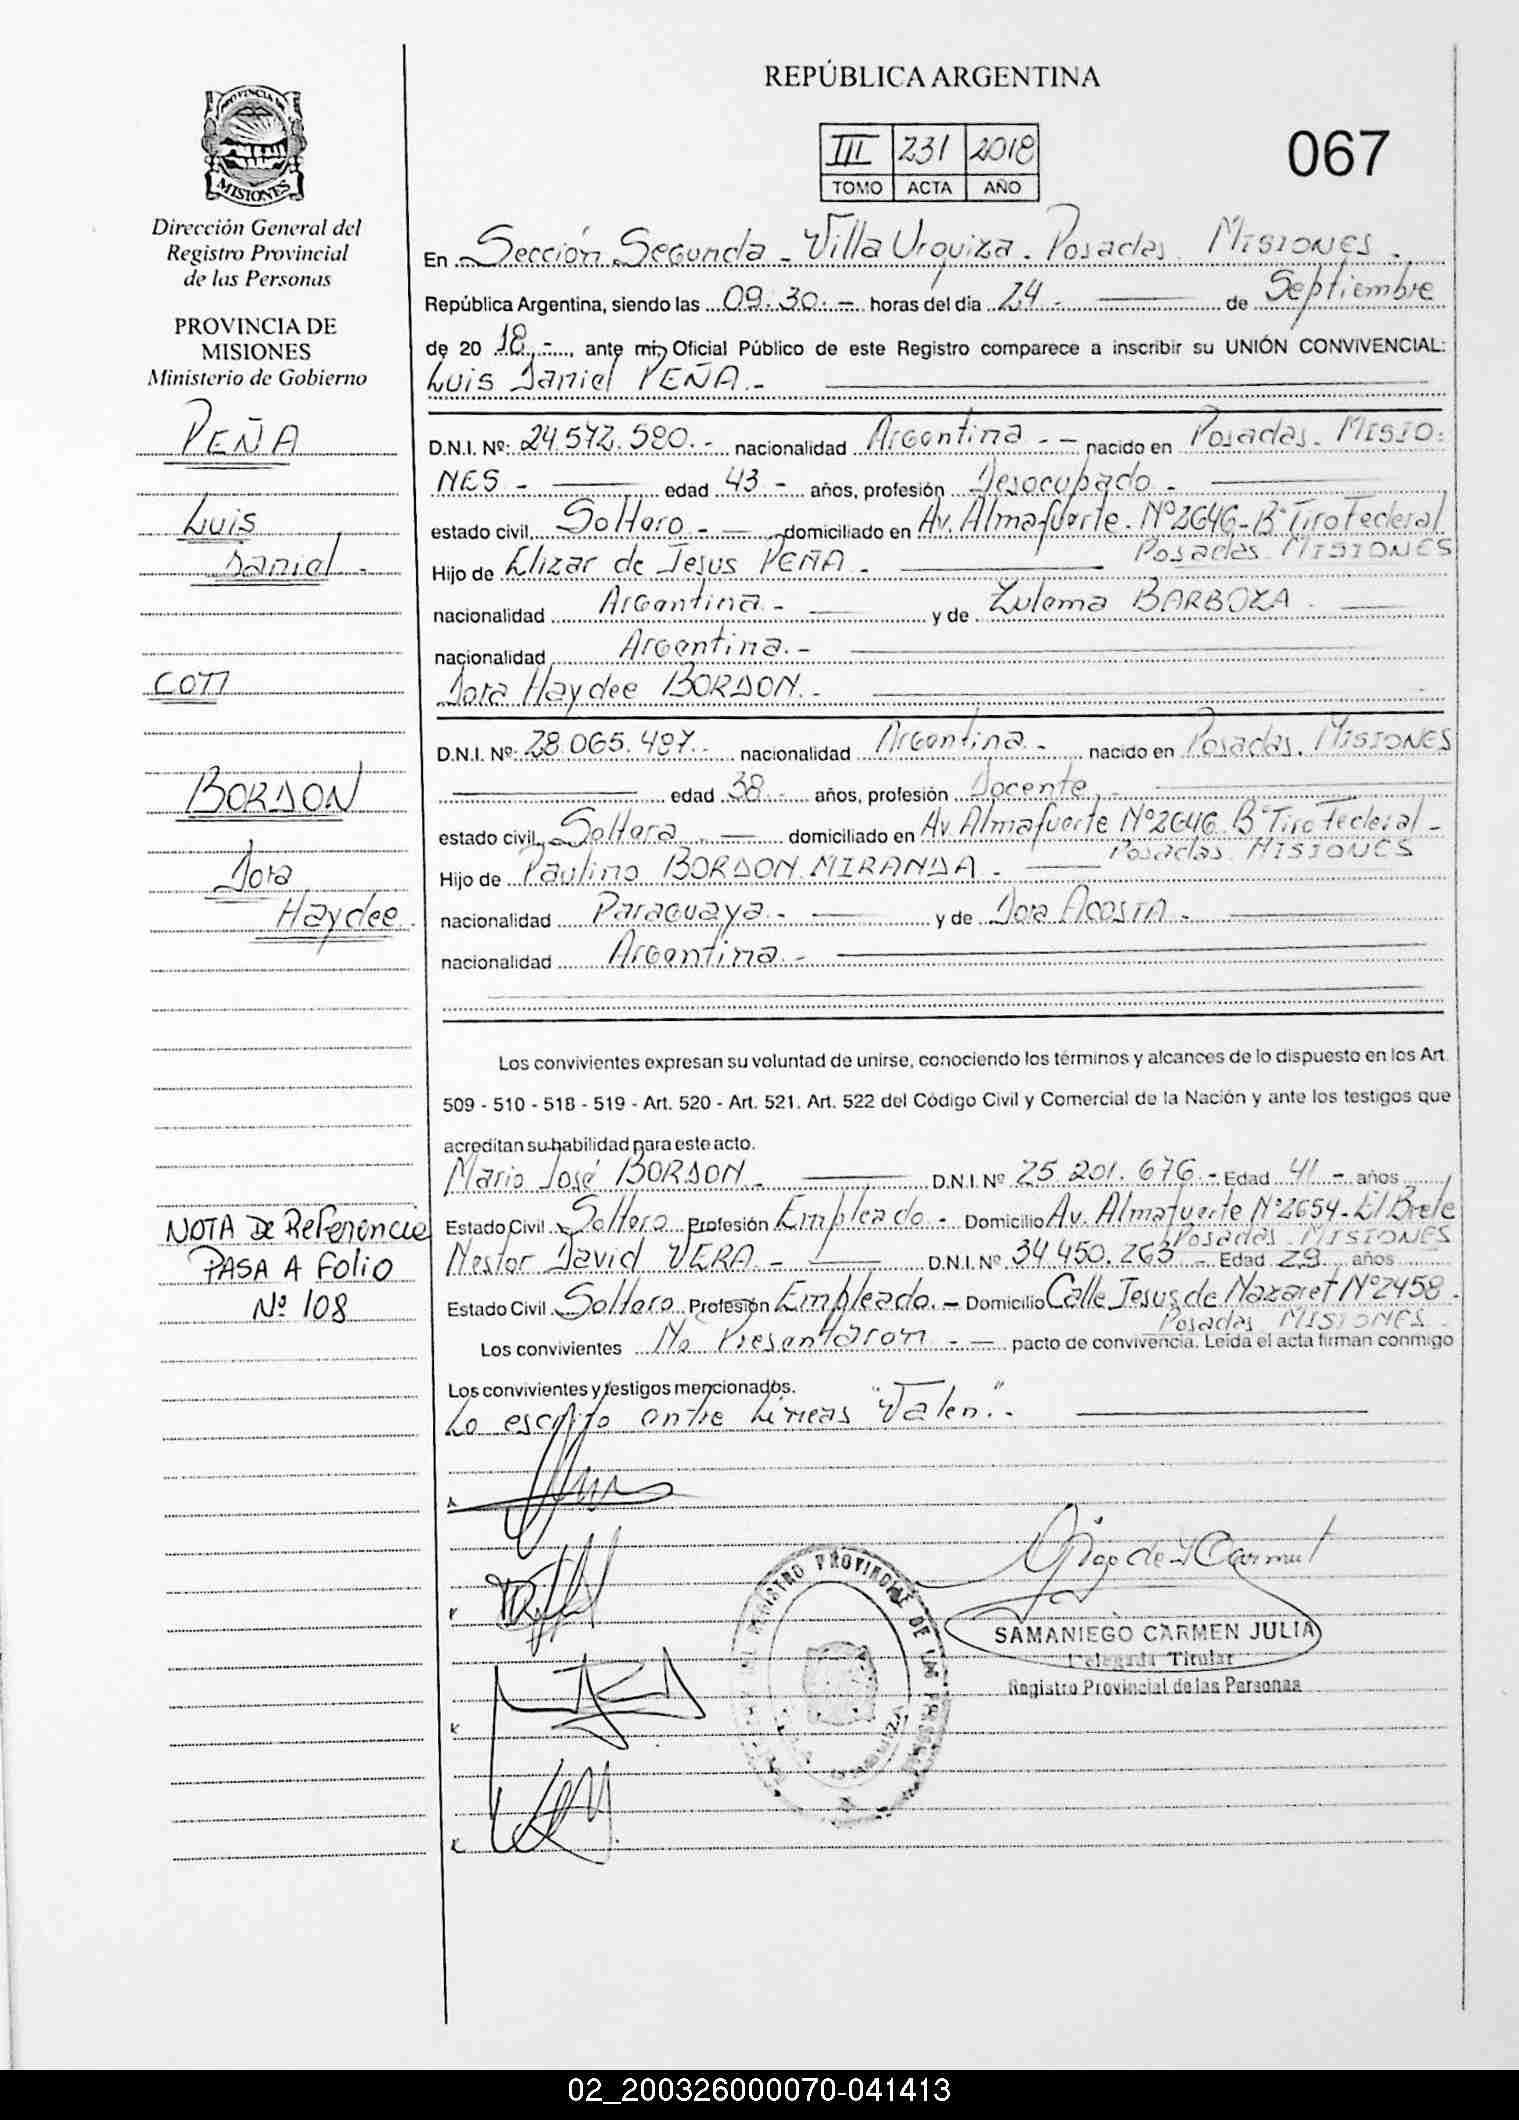 REPÚBLICA ARGENTINA
III 231 2018
TOMO ACTA AÑO
067
PROVINCIA DE
MISIONES
Dirección General del
Registro Provincial
de las Personas
PROVINCIA DE
MISIONES
Ministerio de Gobierno
PEÑA
Luis
Daniel -
CON
BORDON
Dora
Haydee.
NOTA De Referencia
PASA A Folio
Nº 108
En Sección Segunda - Villa Urquiza. Posadas. MISIONES.
República Argentina, siendo las 09:30.- horas del día 24.- de Septiembre
de 20 18.-, ante mí, Oficial Público de este Registro comparece a inscribir su UNIÓN CONVIVENCIAL:
Luis Daniel PEÑA.-
D.N.I. Nº: 24.572.580.- nacionalidad Argentina.- - nacido en Posadas. MISIO:
NES - edad 43 - años, profesión Desocupado -
estado civil Soltero.- domiciliado en Av. Almafuerte. Nº2646-Bº Tiro Federal
Posadas. MISIONES
Hijo de Elizar de Jesus PEÑA -
nacionalidad Argentina.- y de Zulema BARBOZA.
nacionalidad Argentina.-
Dora Haydee BORDON.-
D.N.I. Nº: 28.065.487.- nacionalidad Argentina.- nacido en Posadas. MISIONES
edad 38.- años, profesión Docente.-
estado civil Soltera.- domiciliado en Av. Almafuerte Nº2646 Bº Tiro Federal -
Posadas. MISIONES
Hijo de Paulino BORDON MIRANDA -
nacionalidad Paraguaya.- y de Dora ACOSTA -
nacionalidad Argentina.-
Los convivientes expresan su voluntad de unirse, conociendo los términos y alcances de lo dispuesto en los Art.
509 - 510 - 518 - 519 - Art. 520 - Art. 521. Art. 522 del Código Civil y Comercial de la Nación y ante los testigos que
acreditan su habilidad para este acto.
Mario José BORDON - D.N.I. Nº 25.201.676.- Edad 41 - años
Estado Civil Soltero Profesión Empleado - Domicilio Av. Almafuerte Nº2654-El Brete
Posadas. MISIONES
Nestor David VERA - D.N.I. Nº 34.450.263 - Edad 29 años
Estado Civil Soltero Profesión Empleado.- Domicilio Calle Jesus de Nazaret Nº2458.
Posadas. MISIONES.
Los convivientes No Presentaron - pacto de convivencia. Leída el acta firman conmigo
Los convivientes y testigos mencionados.
Lo escrito entre Lineas "Valen".-
REGISTRO PROVINCIAL DE LAS PERSONAS
SAMANIEGO CARMEN JULIA
Delegada Titular
Registro Provincial de las Personas
02_200326000070-041413